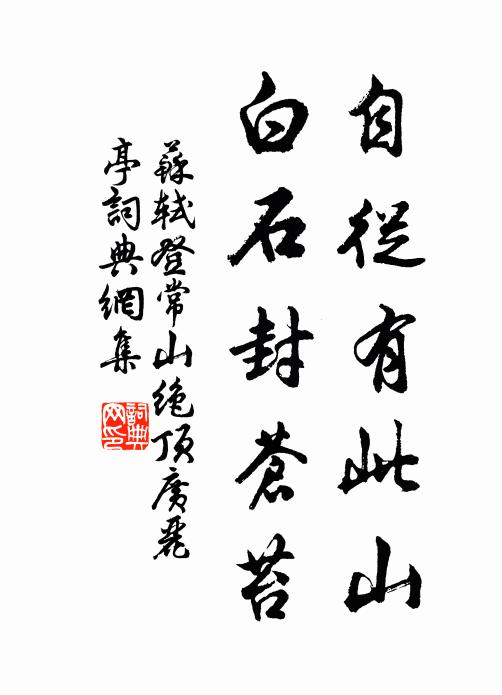 自從有此山
白石封蒼苔
蘇軾登常山絕頂廣麗
亭詞典網集
詞典
网印